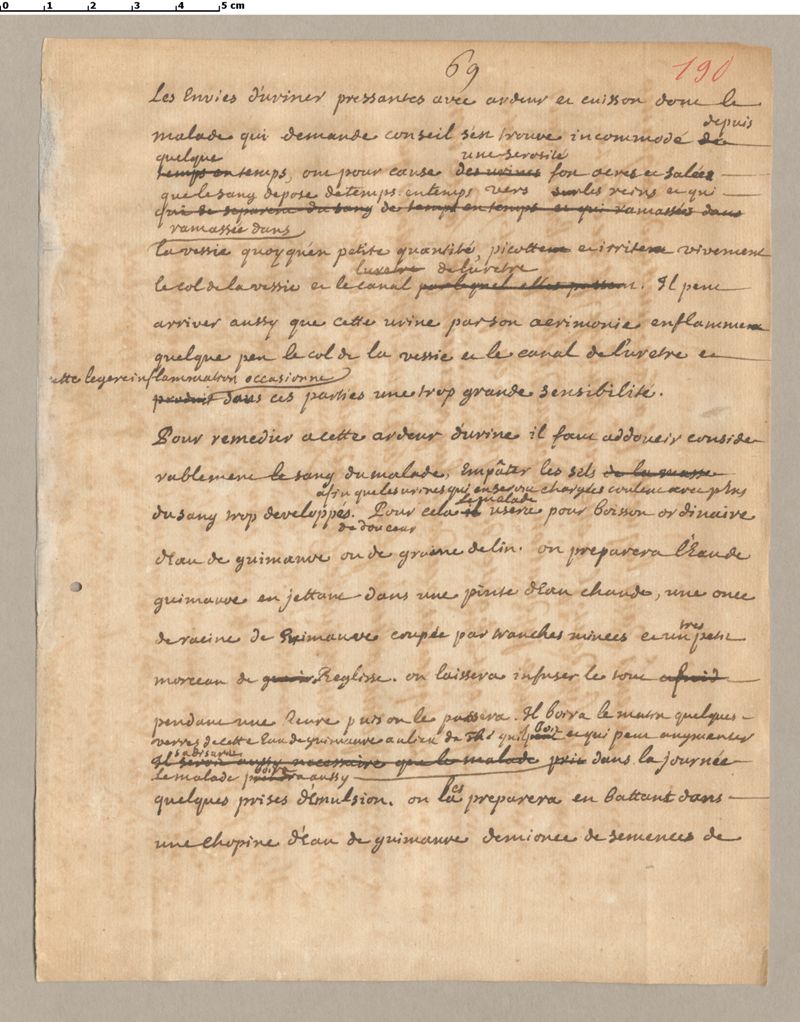 0 1 2 3 4 5 cm
69 190
Les Envies d'uriner pressantes avec ardeur et cuisson dont le
depuis
malade qui demande conseil s'en trouve incommodé de
quelque une serosité
temps en temps, ont pour cause des urines fort acres et salées
que le sang depose de temps en temps vers sur les reins et qui
qui se separent du sang de temps en temps et qui ramassées dans
ramassée dans
la vessie quoyqu'en petite quantité, picottent et irritent vivement
luretre de l'uretre
le col de la vessie et le canal par lequel elles passent. Il peut
arriver aussy que cette urine par son acrimonie enflamment
quelque peu le col de la vessie et le canal de l'uretre et
cette legere inflammation occasionne
produit dans ces parties une trop grande sensibilité.
Pour remedier a cette ardeur d'urine il faut addoucir conside
rablement le sang du malade, Empâter les sels de la masse
afin que les urines qui en seront chargées coulent avec plus
le malade
du sang trop developpés. Pour cela il usera pour boisson ordinaire
de douceur
d'Eau de guimauve ou de graine de lin. on preparera l'Eau de
guimauve en jettant dans une pinte d'Eau chaude, une once
tres
de racine de Guimauve coupée par tranches minces et un petit
morceau de Reglisse. on laissera infuser le tout a froid
pendant une heure puis on le passera. Il boira le matin quelques
verres de cette Eau de guimauve au lieu de Thé qu'il boit et qui peut augmenter
sa disurie
Il seroit aussy necessaire que le malade prit dans la journée
boira
le malade prendra aussy
es
quelques prises d'Emulsion. on la preparera en battant dans
une chopine d'Eau de guimauve demionce de semences de